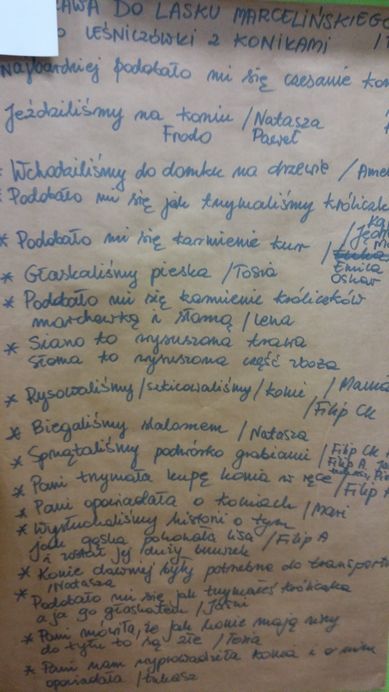 AWA DO LASKU MARCELIŃSKIEGO
O LEŚNICZÓWKI Z KONIKAMI /
Najbardziej podobało mi się czesanie kon
Jeździliśmy na koniu / Natasza
Frodo Paweł
* Wchodziliśmy do domku na drzewie / Ame
* Podobało mi się jak trzymaliśmy królicak
* Podobało mi się karmienie kur /
Emilia
Oskar
* Głaskaliśmy pieska / Tosia
* Podobało mi się karmienie króliczków
marchewką i słomą / Lena
* Siano to wysuszona trawa
słoma to wysuszona część zboża
* Rysowaliśmy / szkicowaliśmy / konie /
/ Filip CK
* Biegaliśmy slalomem / Natasza
* Sprzątaliśmy podwórko grabiami / Filip CK
Filip A
* Pani trzymała kupę konia w ręce / Filip
* Pani opowiadała o koniach /
* Wysłuchaliśmy historii o tym
jak gąska pokonała lisa / Filip A
i został jej duży
* Konie dawniej były potrzebne do transportu
/ Natasza
* Podobało mi się jak trzymałeś króliczka
a ja go głaskałem /
* Pani mówiła, że jak konie mają uszy
do tyłu to są złe / Tosia
* Pani nam wyprowadziła konia i o nim
opowiadała / Łukasz